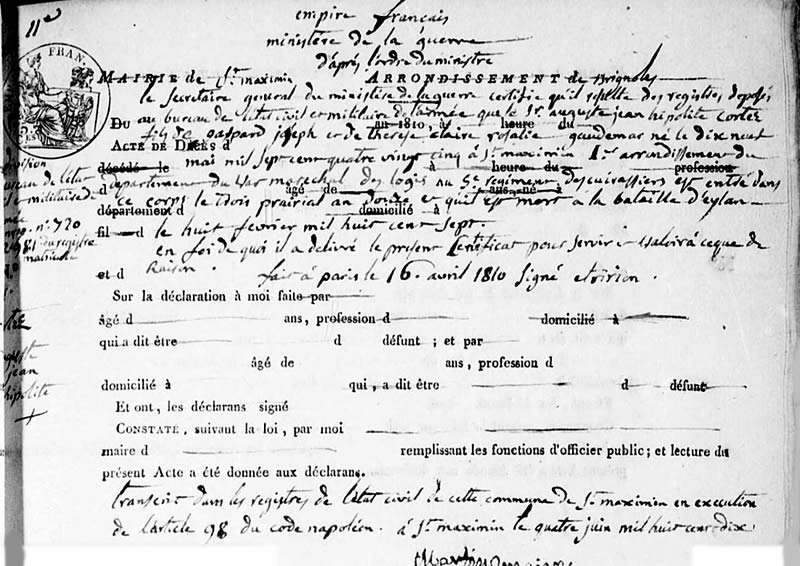 11e
empire français
ministère de la guerre
d'après l'ordre du ministre
FRAN.
MAIRIE de St. maximin ARRONDISSEMENT de Brignoles
le Secretaire general du ministere de la guerre certifie qu'il resulte des registres deposés
au bureau de l'etat civil et militaire de l'armée que le Sr. auguste jean hipolite cortez
DU au 1810, à heure du
fils de Gaspard joseph et de therese claire rosalie gaudemar né le dix neuf
ACTE DE DÉCÈS d
mai mil sept cent quatre vingt cinq à St. maximin 1er arrondissement du
décédé le à heure du profession
departement du Var marechal des logis au 5e regiment de cuirassiers est entré dans
d âgé de ans né à
ce corps le trois prairial an douze et qu'il est mort a la bataille d'eylau
département d domicilié à
fil d le huit fevrier mil huit cent sept.
en foi de quoi il a delivré le present Certificat pour servir et valoir à ce que de
et d Raison. fait à paris le 16 avril 1810 Signé
bureau de l'etat
militaire de
n°. 720
du registre
matricule
Sur la déclaration à moi faite par
âgé d ans, profession d domicilié à
qui a dit être d défunt ; et par
âgé de ans, profession d
domicilié à qui, a dit être d défunt
jean
hipolite
+
Et ont, les déclarans signé
CONSTATÉ, suivant la loi, par moi
maire d remplissant les fonctions d'officier public; et lecture du
présent Acte a été donnée aux déclarans.
transcrit dans les registres de l'état civil de cette commune de St. maximin en execution
de l'article 98 du code napoléon. à St. maximin le quatre juin mil huit cent dix